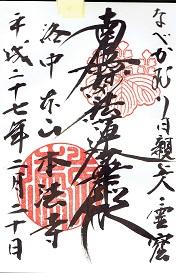 なべかむり日親上人霊窟
南無妙法蓮華経
洛中 本山 本法寺
平成二十七年一月二十日